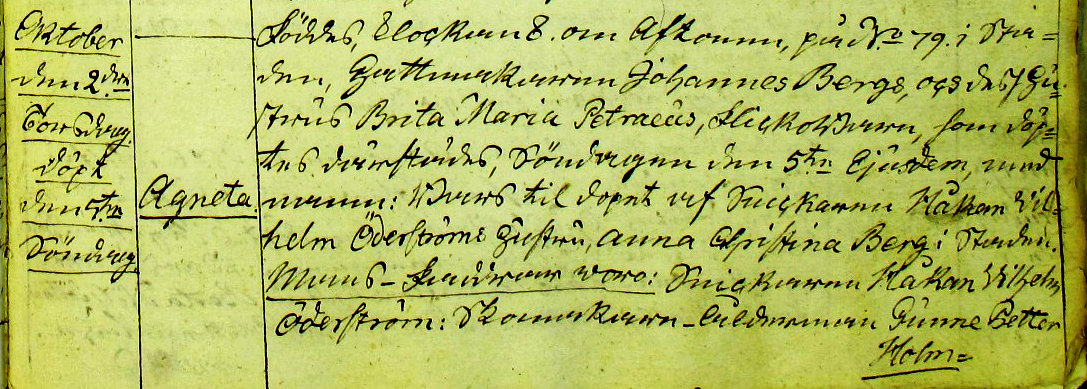 Oktober
den 2.dra
Torsdag.
döpt
den 5te
Söndag.
Agneta.
Föddes, Clockan 8. om Aftonen, på N.o 79. i Sta=
den, Hattmakaren Johannes Bergs, och des Hu=
strus Brita Maria Petraeus, Flickobarn, som döp=
tes därstädes, Söndagen den 5te Ejusdem, med
namn: Bars til dopet af Snickaren Håkan Vil=
helm Öderströms Hustru, Anna Christina Berg i Staden.
Manns-Faddrar woro: Snickaren Håkan Vilhelm
Öderström: Skomakare-Ålderman Gunne Petter
Holm=